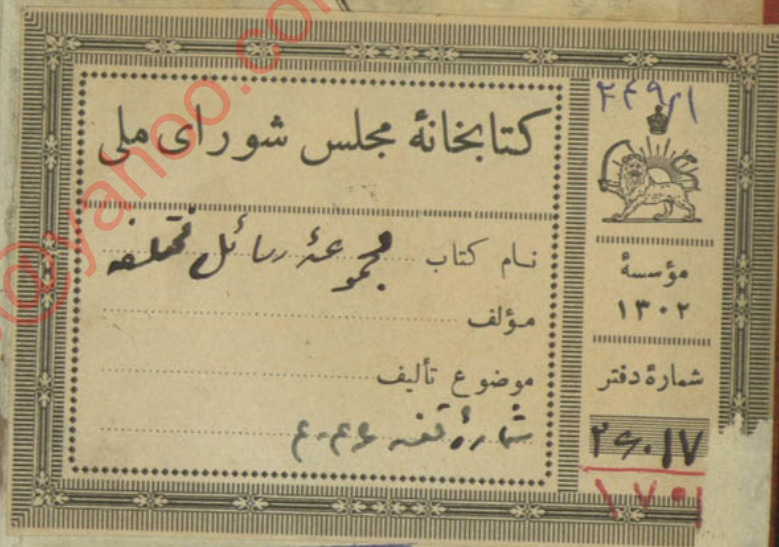 کتابخانهٔ مجلس شورای ملی
نام کتاب مجموعهٔ رسائل مختلفه
مؤلف
موضوع تألیف
شمارهٔ قفسه
مؤسسهٔ
۱۳۰۲
شمارهٔ دفتر
۲۶۰۱۷
@yahoo.co